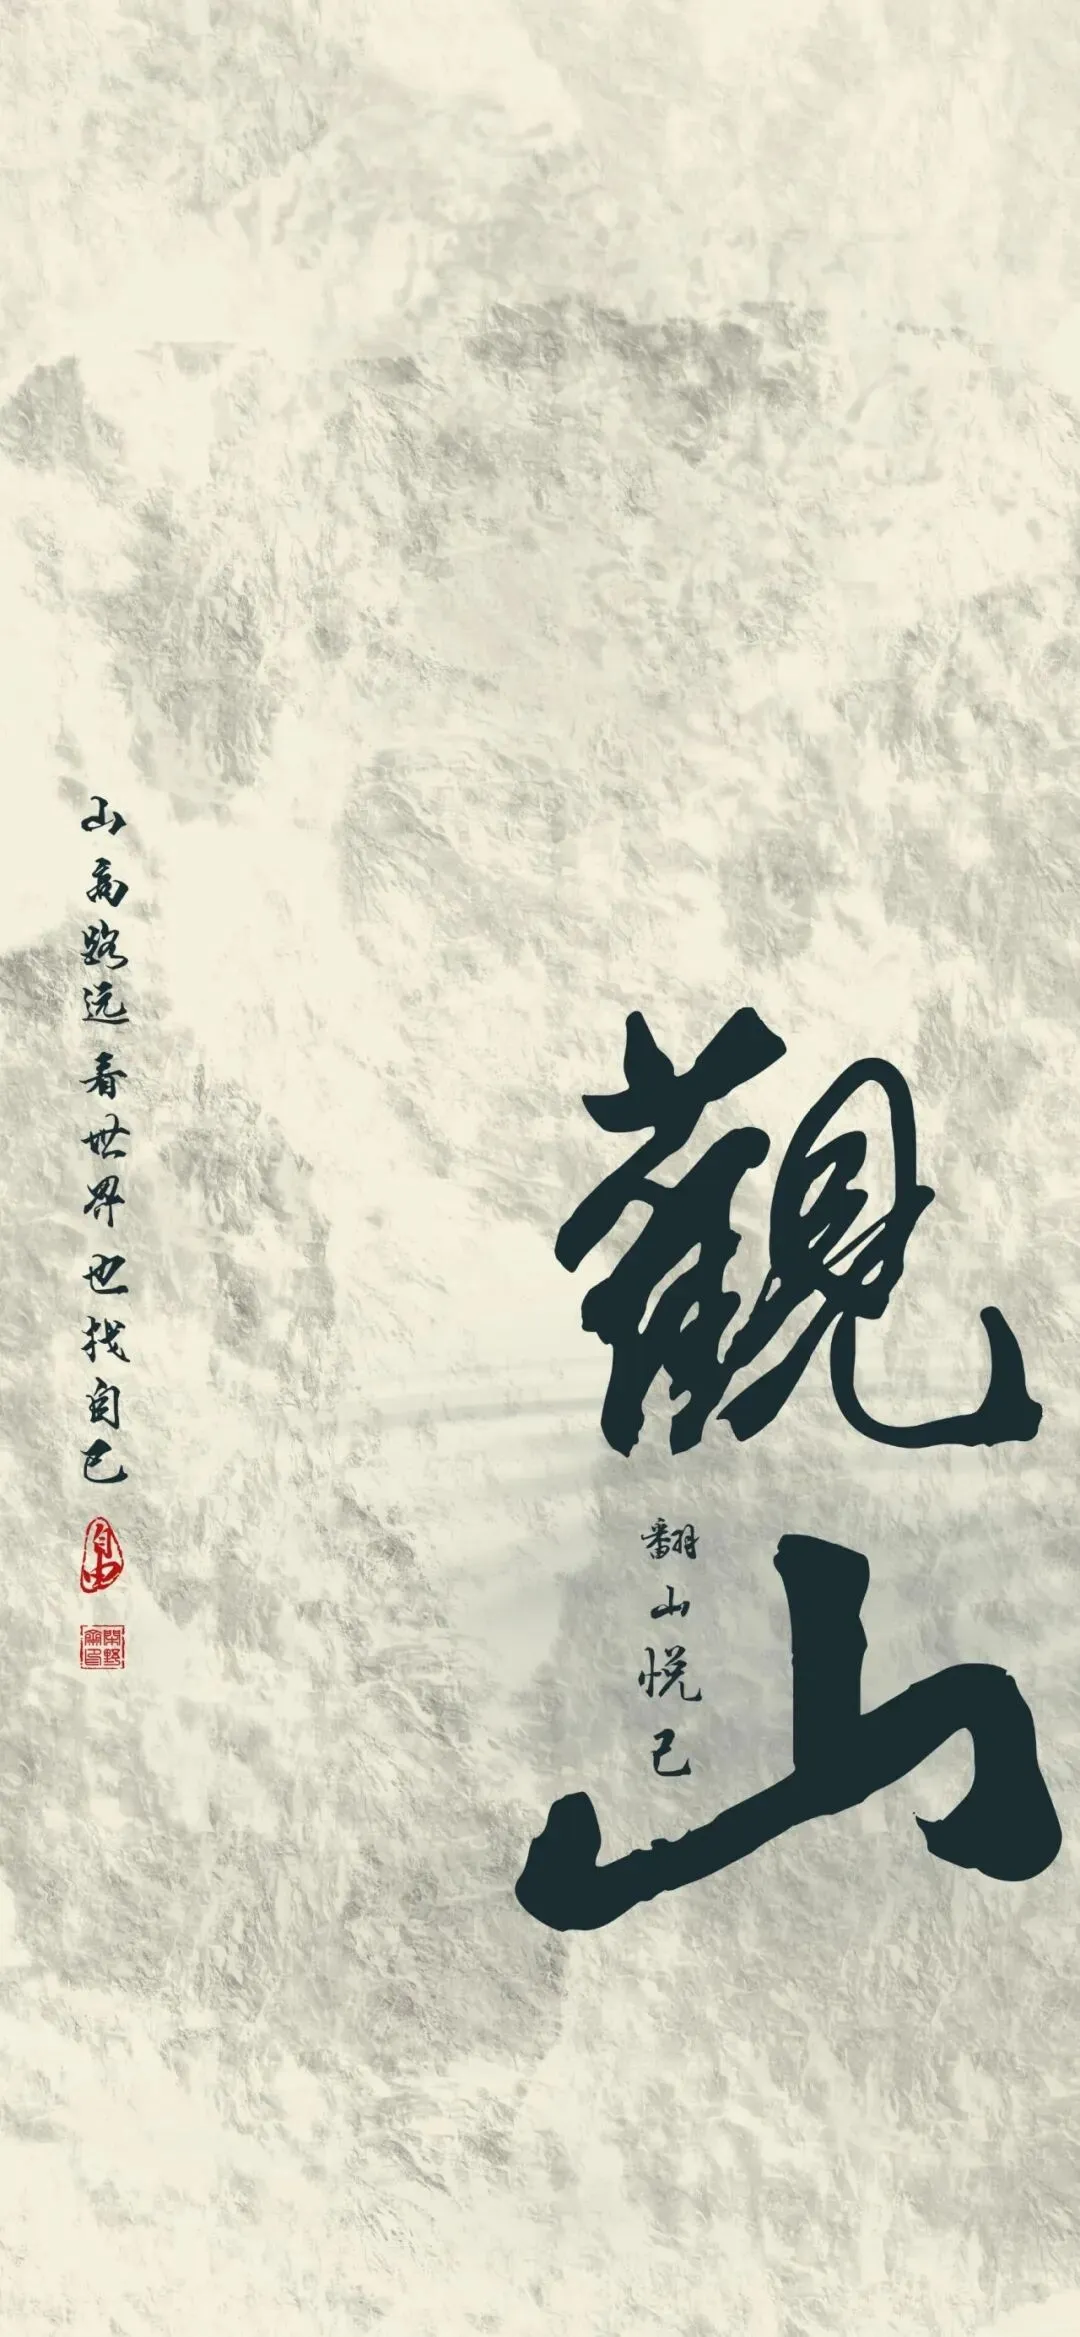 觀山
翻山悦己
山高路远看世界也找自己
自由